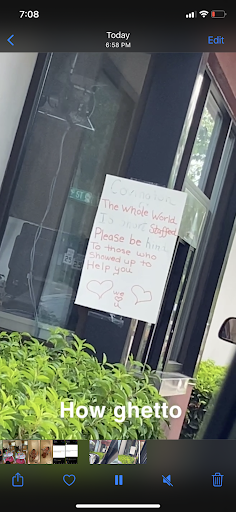 7:08
Today
6:58 PM
Edit
The whole World
Is short Staffed
Please be kind
To those who
showed up to
Help you
we
u
How ghetto